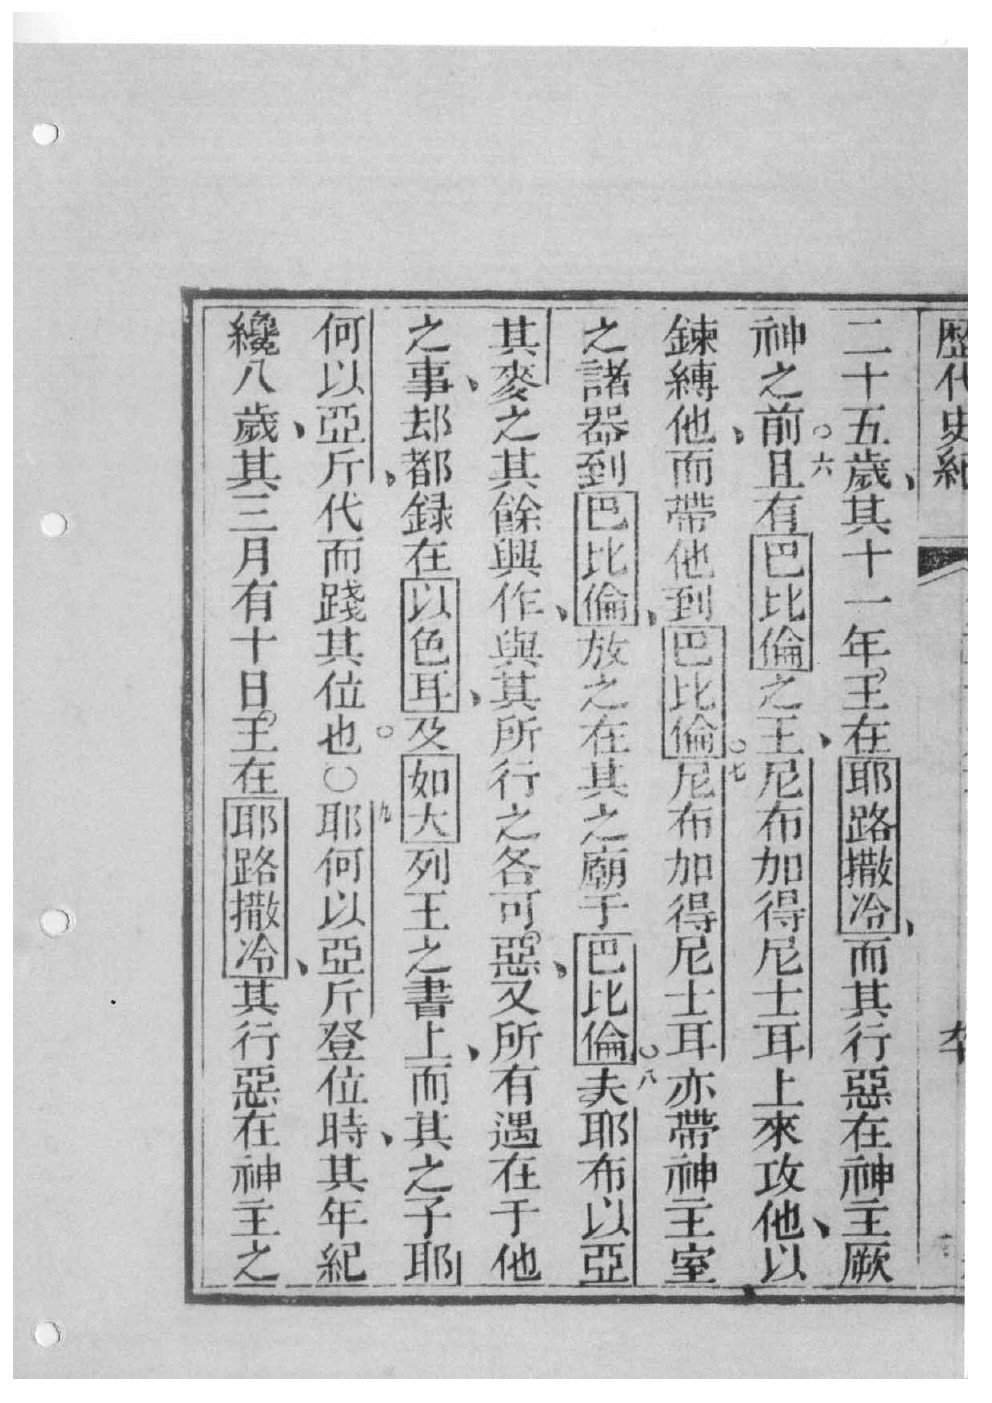 歷代史紀
二十五歲、其十一年。王在耶路撒冷、而其行惡在神主厥
神之前○六且有巴比倫之王、尼布加得尼士耳上來攻他、以
鍊縛他、而帶他到巴比倫○七尼布加得尼士耳亦帶神主室
之諸器到巴比倫、放之在其之廟于巴比倫○八夫耶布以亞
其麥之其餘與作、與其所行之各可惡。、又所有遇在于他
之事、却都録在以色耳、及如大列王之書上、而其之子耶
何以亞斤、代而踐其位也○〇九耶何以亞斤登位時、其年紀
纔八歲、其三月有十日。王在耶路撒冷、其行惡在神主之